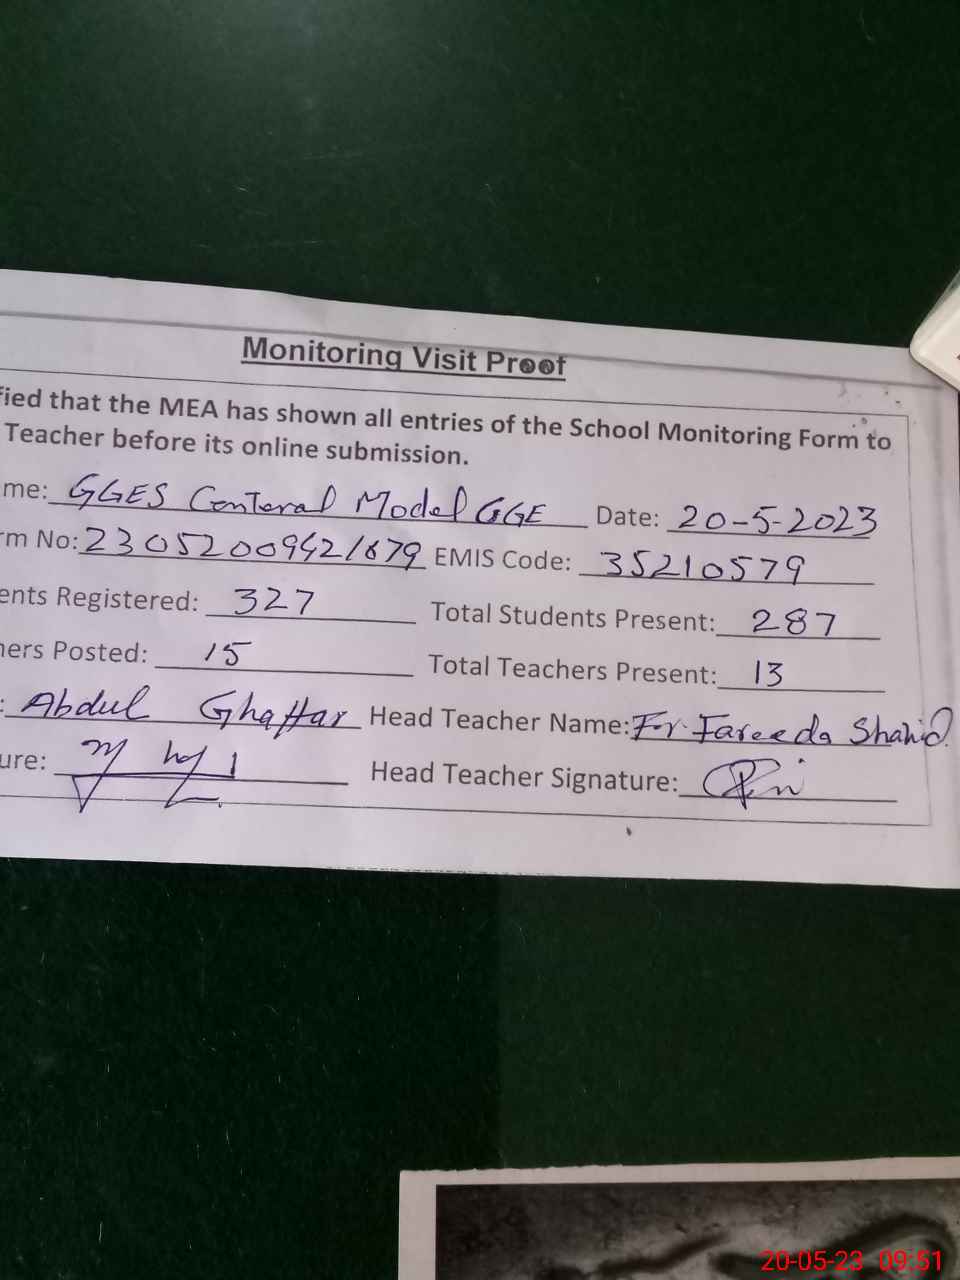 Monitoring Visit Proof
fied that the MEA has shown all entries of the School Monitoring Form to
Teacher before its online submission.
me: GGES Centeral Model GGE Date: 20-5-2023
rm No: 23052009421679 EMIS Code: 35210579
ents Registered: 327 Total Students Present: 287
hers Posted: 15 Total Teachers Present: 13
: Abdul Ghaffar Head Teacher Name: For Fareeda Shahid
ure: Head Teacher Signature:
20-05-23 09:51